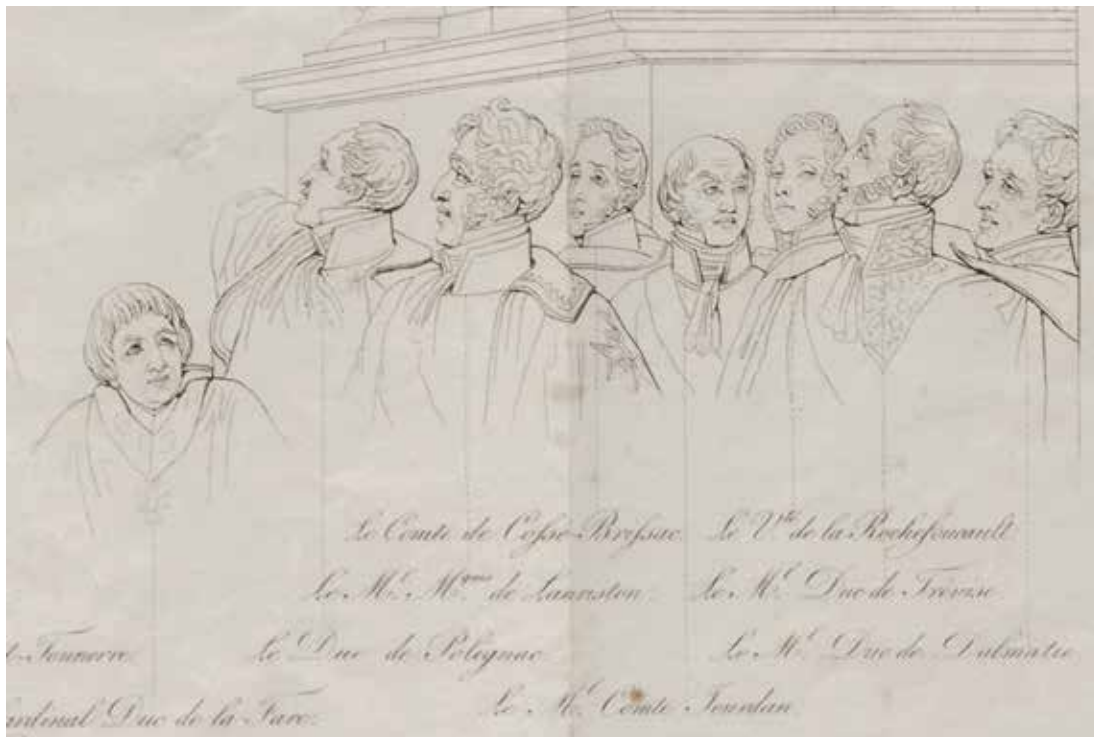 Le Comte de Cossé-Brissac. Le V.te de la Rochefoucault.
Le M.l M.quis de Lauriston. Le M.l Duc de Trévise.
t-Tonnerre. Le Duc de Polignac. Le M.l Duc de Dalmatie.
ardinal Duc de la Fare. Le M.l Comte Jourdan